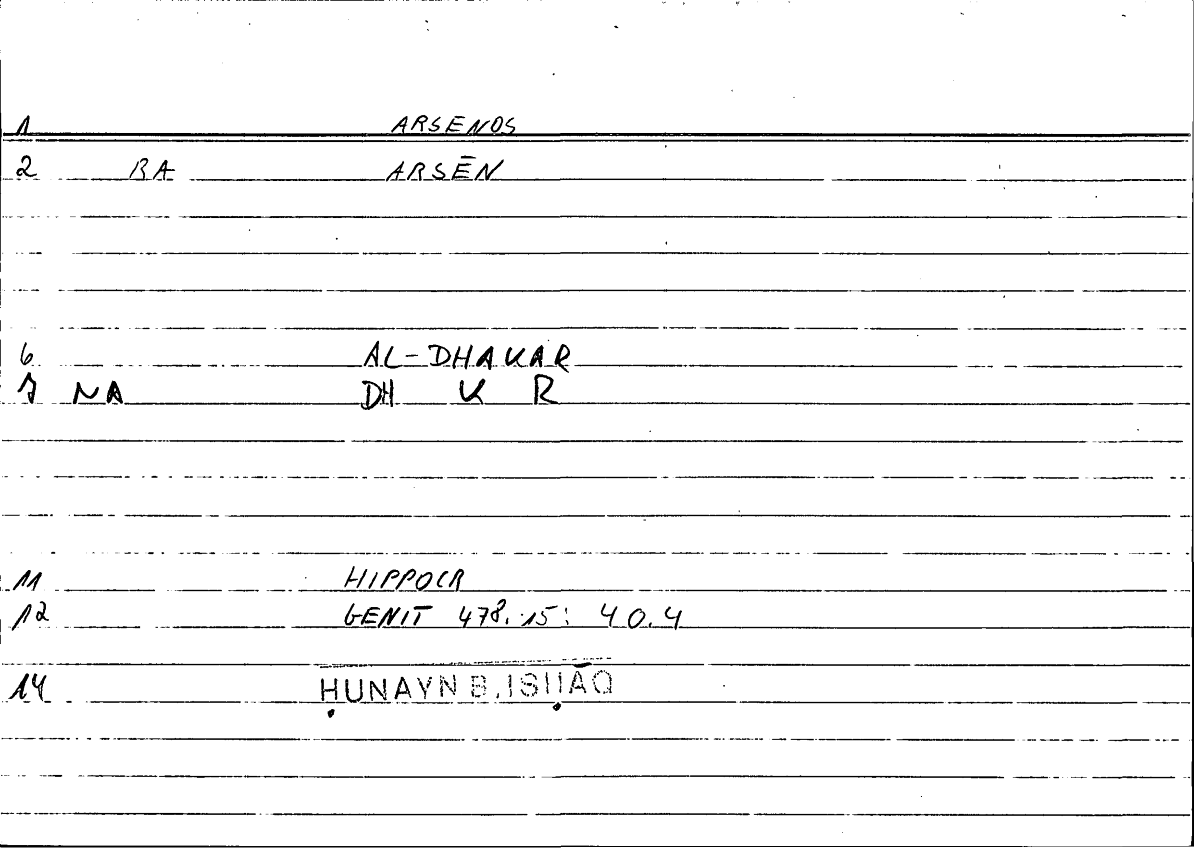 1 ARSENOS
2 BA ARSĒN
6 AL-DHAKAR
7 NA DH K R
11 HIPPOCR
12 GENIT 478.15: 40.4
14 ḤUNAYN B. ISḤĀQ